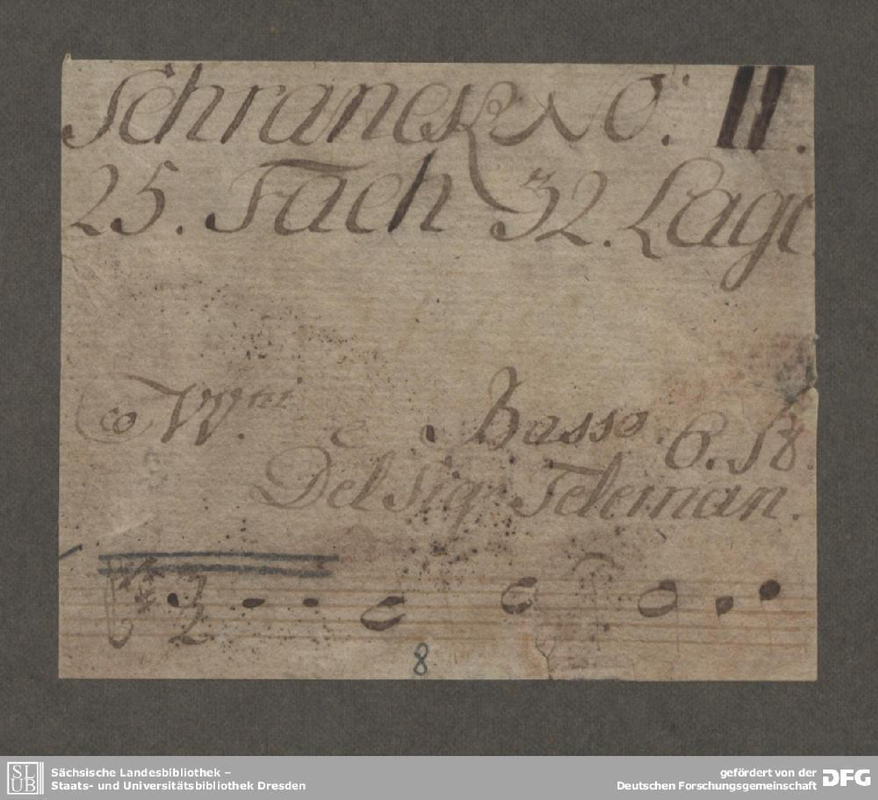 Schranck No: II.
25. Fach 32. Lage
co VV.ni e Basso. 6. 18.
Del Sigr Teleman.
3
2
8
SLUB
Sächsische Landesbibliothek –
Staats- und Universitätsbibliothek Dresden
gefördert von der
Deutschen Forschungsgemeinschaft DFG